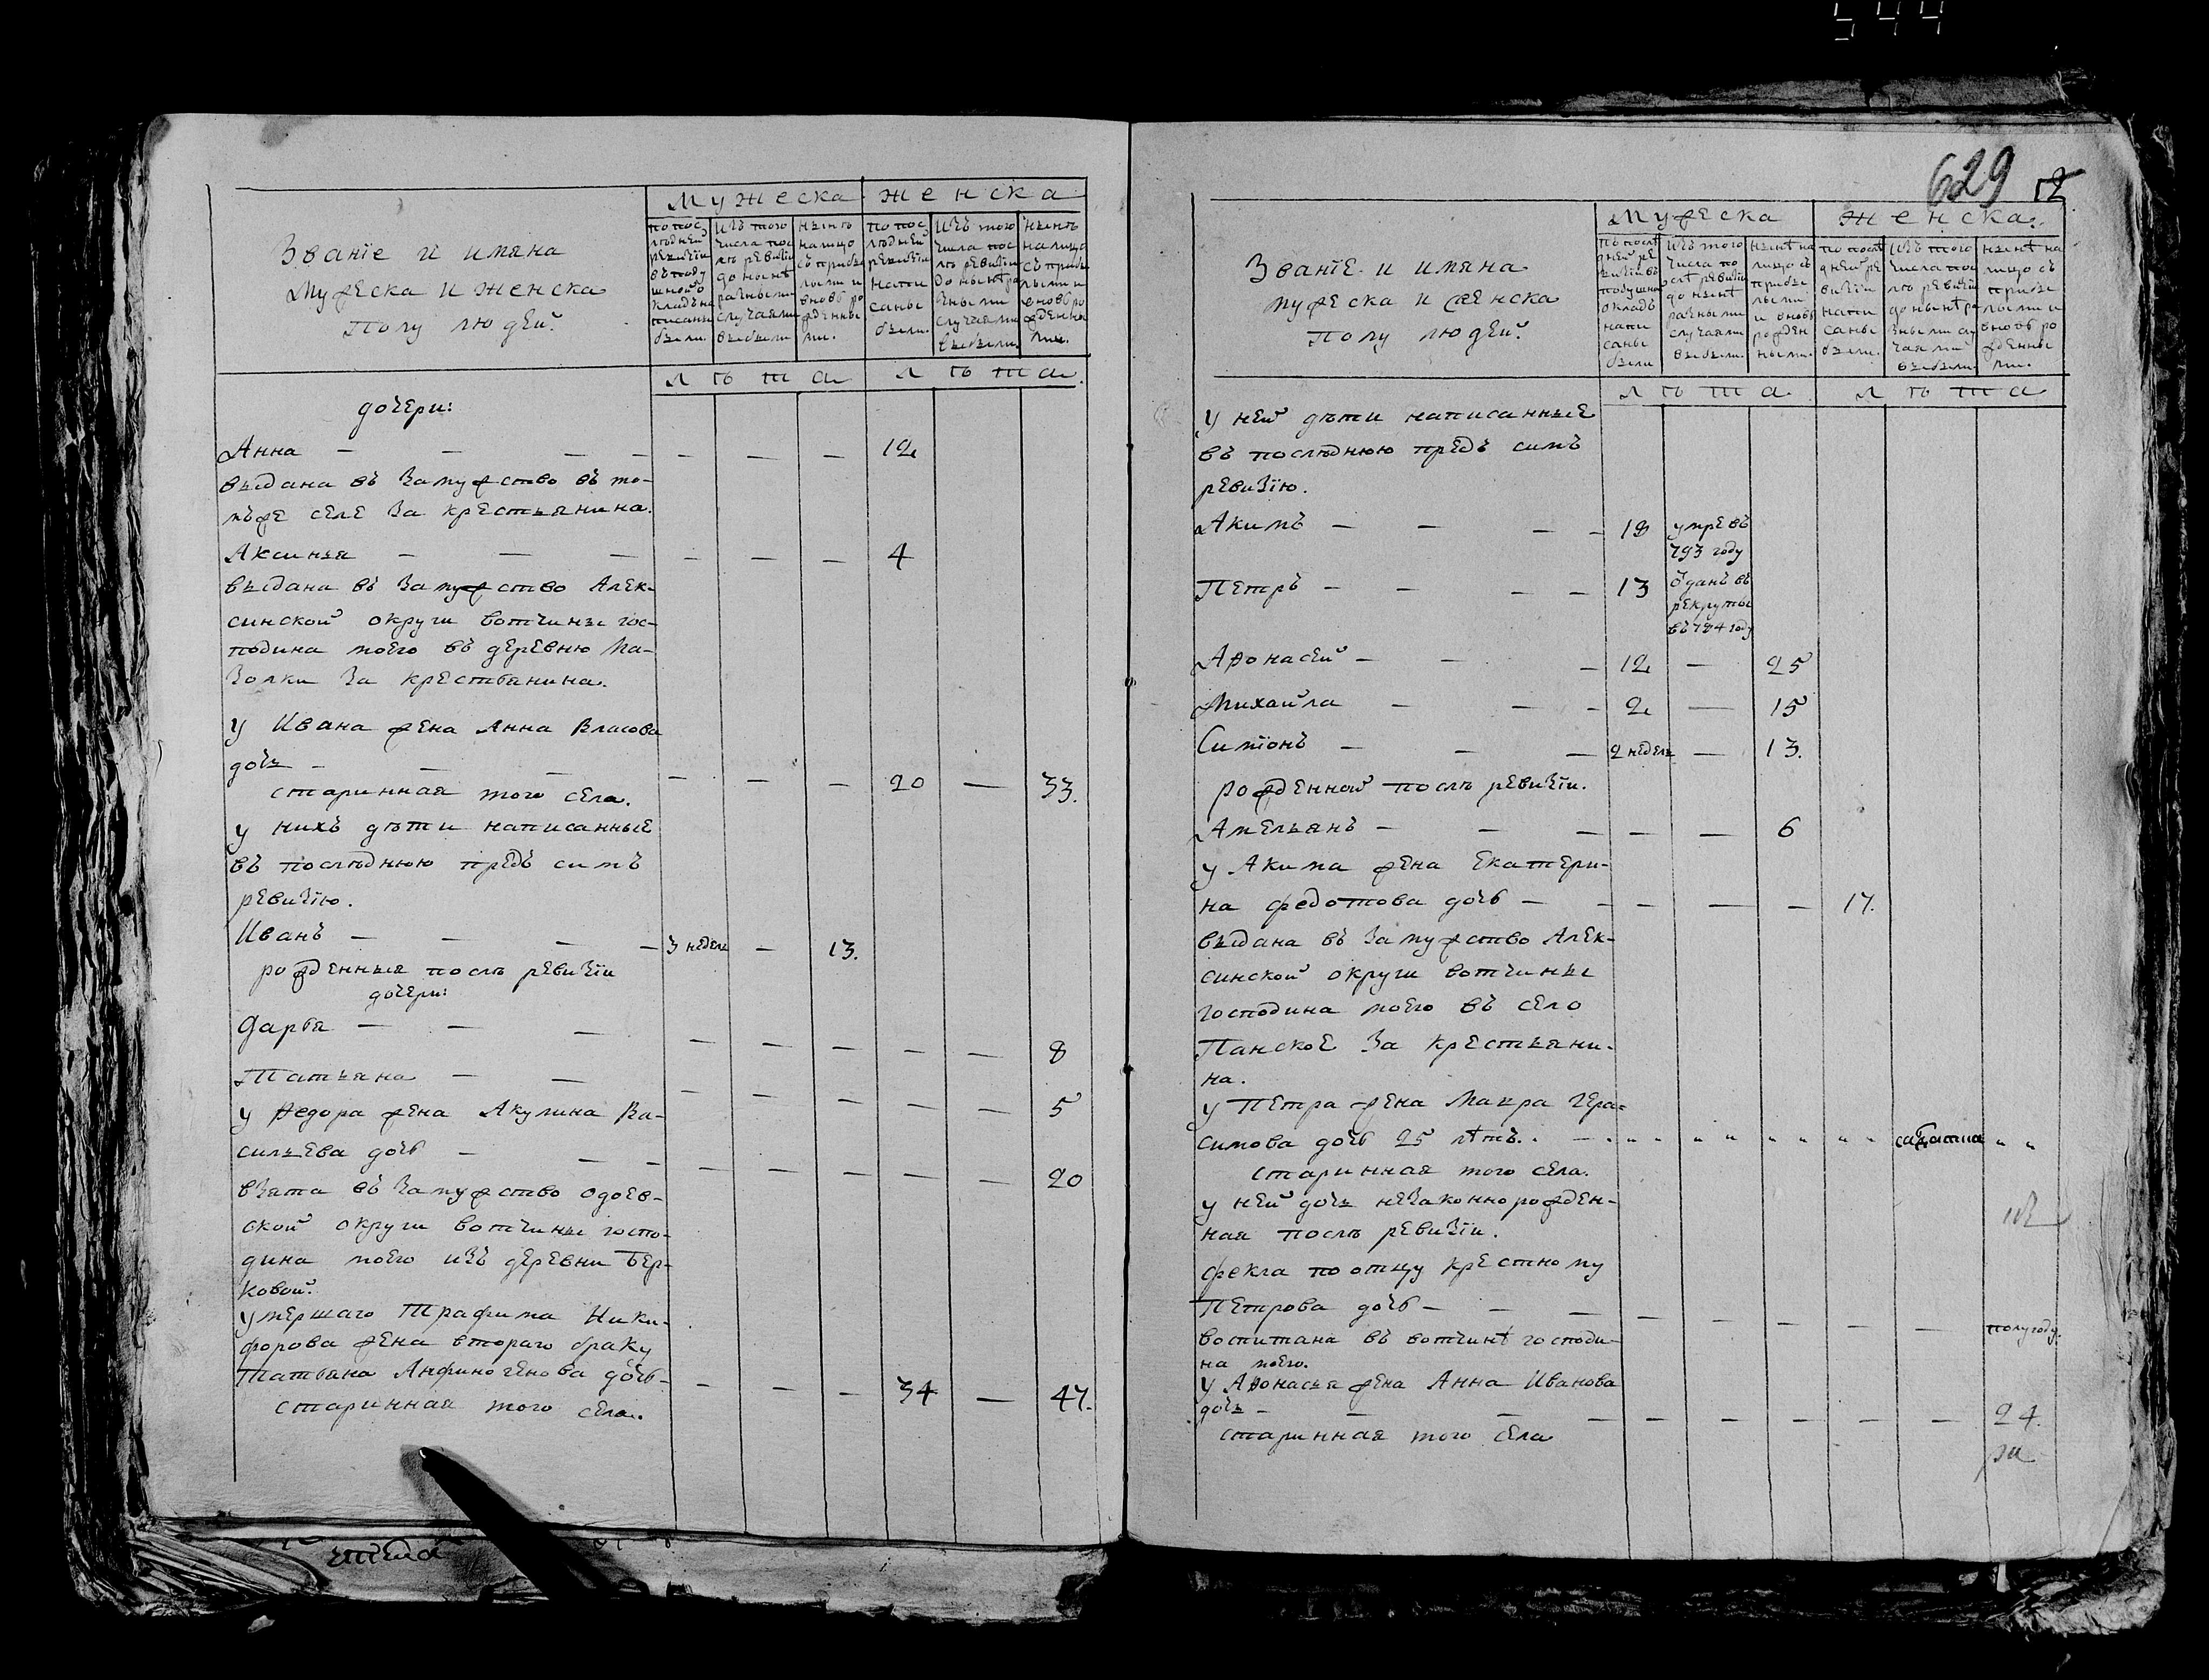 544
Званїе и имяна
Мужеска и женска
полу людей.
Мужеска
женска
по пос
лѣдней
ревизїи
въ поду
шной о
кладъ на
писаны
были.
изъ того
числа пос
лѣ ревизїи
до нынѣ
разными
случаями
выбыли
нынѣ
на лицо
съ прибы
лыми и
вновь ро
жденны
ми.
по пос
лѣдней
ревизїи
напи
саны
были.
изъ того
числа пос
лѣ ревизїи
до нынѣ ра
зными
случаями
выбыли.
нынѣ
на лицо
съ прибы
лыми и
вновь ро
жденны
ми.
лѣта
лѣта.
дочери:
Анна — — — — — — — 12
выдана въ замужство въ то-
мъже селе за крестьянина.
Аксинья — — — — — — 4
выдана въ замужство Алек-
синской округи вотчины гос-
подина моего въ деревню Ма-
золки за крестьянина.
у Ивана жена Анна Власова
дочь — — — — — — 20 — 33.
старинная того села.
у нихъ дѣти написанные
въ послѣднюю предъ симъ
ревизїю.
Иванъ — — — — 3 недель — 13.
рожденныя послѣ ревизїи
дочери:
Дарья — — — — — — — — 8
Татьяна — — — — — — — 5
у Федора жена Акулина Ва-
сильева дочь — — — — — — — — 20
взята въ замужство Одоев-
ской округи вотчины госпо-
дина моего изъ деревни Бер-
ковой.
умершаго Трафима Ники-
форова жена втораго браку
Татьяна Анфиногенова дочь — — — — 34 — 47.
старинная того села.
629
12
Званїе и имяна
мужеска и женска
полу людей.
Мужеска
женска.
по послѣ
дней ре
визїи въ
подушно
окладъ
напи
саны
были
изъ того
числа по
слѣ ревизїи
до нынѣ
разными
случаями
выбыли.
нынѣ на
лицо съ
прибы
лыми
и вновь
рожден
ными.
по послѣ
дней ре
визїи
напи
саны
были.
изъ того
числа пос
лѣ ревизїи
до нынѣ ра
зными слу
чаями
выбыли
нынѣ на
лицо съ
прибы
лыми и
вновь ро
жденны
ми.
лѣта.
лѣта
у ней дѣти написанные
въ послѣднюю предъ симъ
ревизїю.
Акимъ — — — — 18 умре въ
793 году
Петръ — — — — 13 ѿданъ въ
рекруты
въ 794 году
Афонасей — — — 12 — 25
Михайла — — — 2 — 15
Симїонъ — — — 2 недель — 13.
рожденной послѣ ревизїи.
Амельянъ — — — — — 6
у Акима жена Екатери-
на федотова дочь — — — — — 17.
выдана въ замужство Алек-
синской округи вотчины
господина моего въ село
Панское за крестьяни-
на.
у Петра жена Мавра Гера-
симова дочь 25 лѣтъ.
старинная того села.
у ней дочь незаконнорожден-
ная послѣ ревизїи.
фекла по отцу крестному
Петрова дочь — — — — — — — — полугоду.
воспитана въ вотчинѣ господи-
на моего.
у Афонасья жена Анна Иванова
дочь — — — — — — — — 24.
старинная того села